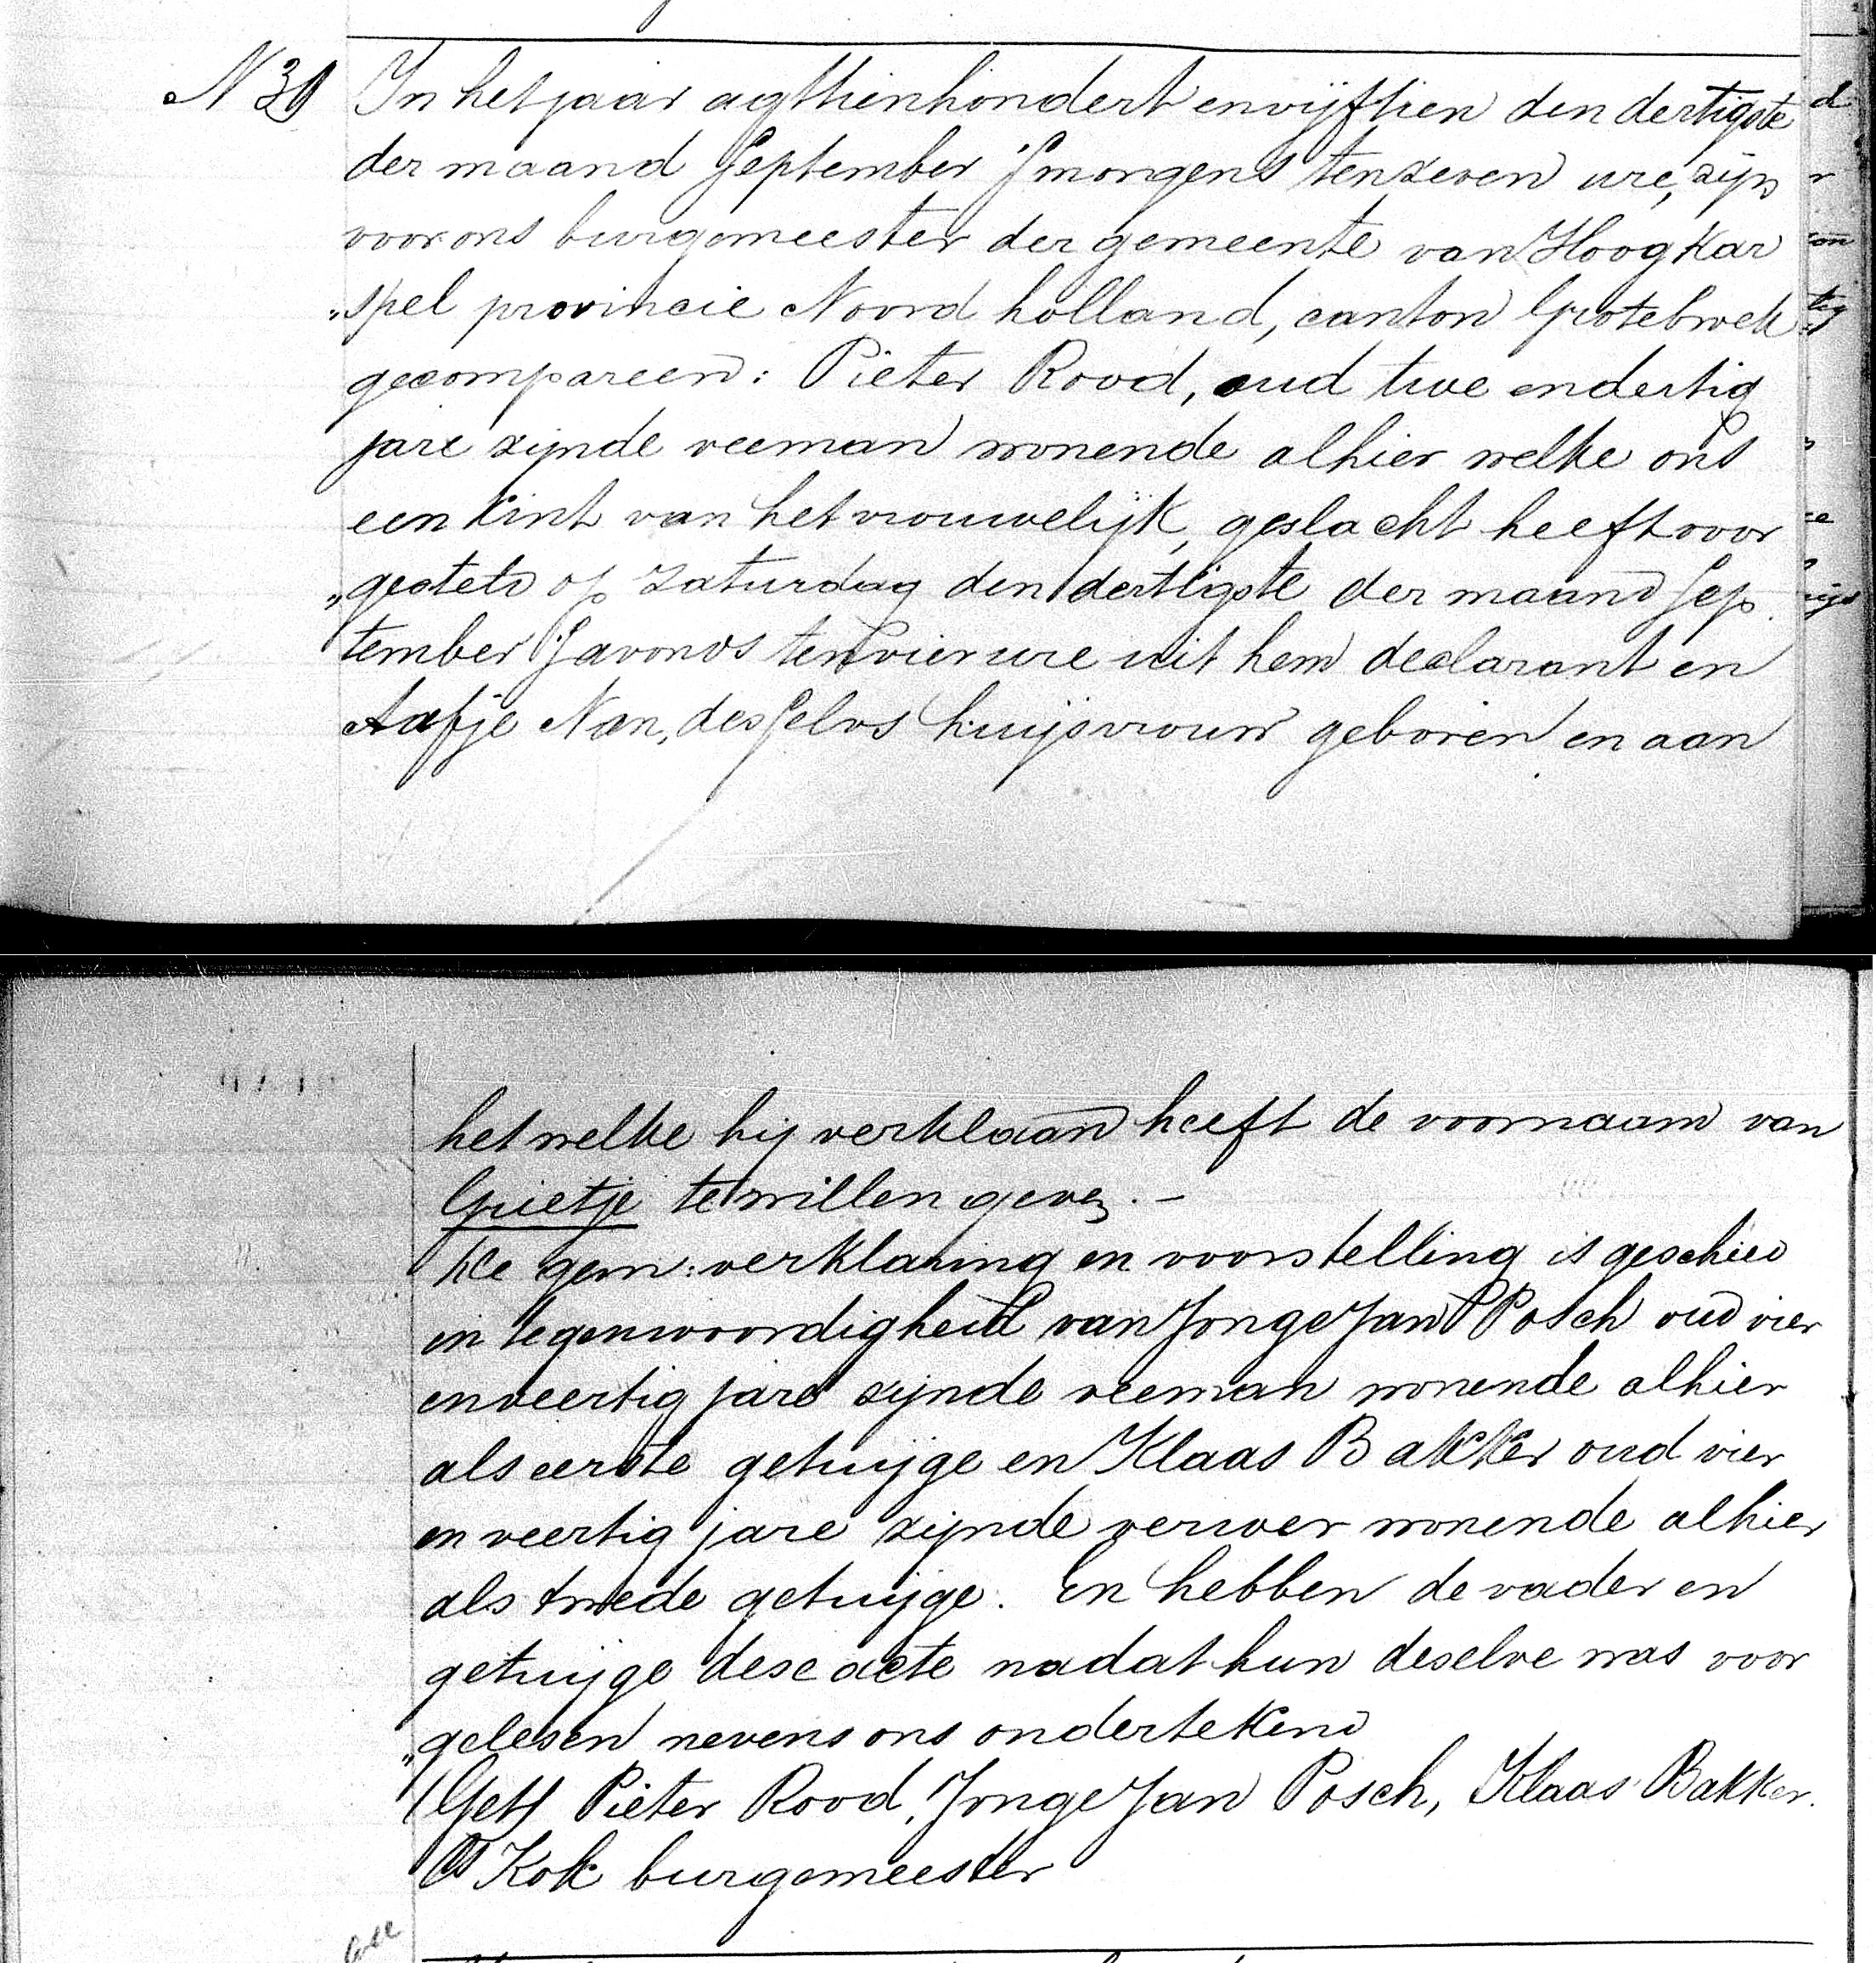 N 31 In het jaar agtthienhondert en vijftien den dertigste
der maand September 'Smorgens ten zeven ure, zijn
voor ons burgemeester der gemeente van Hoogkar
„spel provincie Noord holland, canton Grotebroek
gecompareerd: Pieter Rood, oud twe en dertig
jare zijnde veeman wonende alhier welke ons
een kint van het vrouwelijk geslacht heeft voor
„gesteld op Zaturdag den dertigste der maand Sep
tember 'Savonds ten vier ure uit hem declarant en
Aafje Nan, desselvs huijsvrouw geboren en aan
het welke hij verklaard heeft de voornaam van
Grietje te willen geven. –
De gem: verklaring en voorstelling is geschied
in tegenwoordigheid van Jonge Jan Posch oud vier
en veertig jare zijnde veeman wonende alhier
als eerste getuijge en Klaas Bakker oud vier
en veertig jare zijnde verwer wonende alhier
als twede getuijge. En hebben de vader en
getuijge dese acte nadat hun deselve was voor
„gelesen nevens ons ondertekend
(Get) Pieter Rood, Jonge Jan Posch, Klaas Bakker.
Kok burgemeester